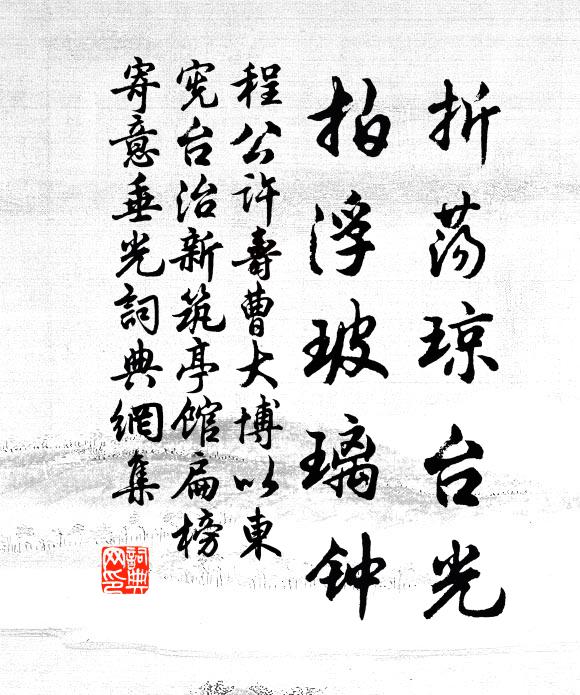 折荡琼台光
拍浮玻璃钟
程公许寿曹大博以东
宪台治新筑亭馆扁榜
寄意垂光詞典網集
詞典网印